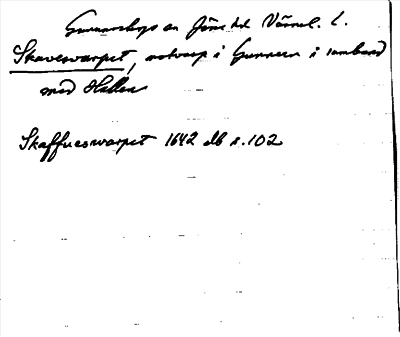 Gunnarskogs sn Jösse hd Värml. l.
Skavesvarpet, notvarp i Gunnern i samband
med Hellen
Skaffueswarpet 1642 db s. 102